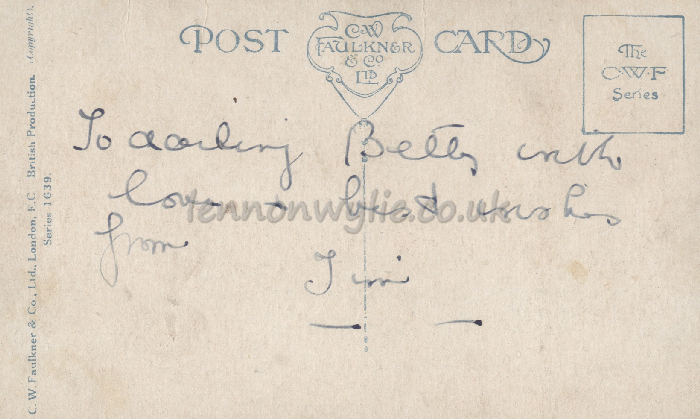 POST CARD
C.W.
FAULKNER
& Co
LTD
The
C·W·F
Series
To darling Betty with
love & best wishes
from
Jim
tennonwylie.co.uk
C. W. Faulkner & Co., Ltd., London, E.C British Production. Copyright.
Series 1639.